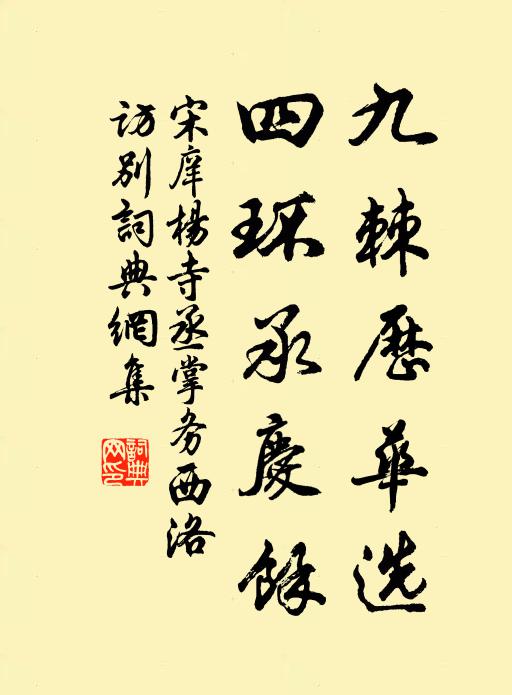 九棘歷華选
四环承慶餘
宋庠楊寺丞掌务西洛
访别詞典網集
詞典網印